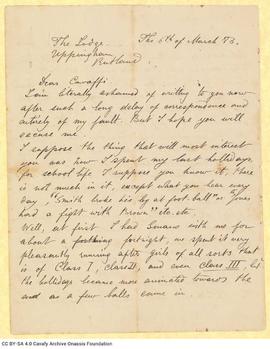 The Lodge. The 6th of March 78.
Uppingham
Rutland.
Dear Cavaffi
I am literally ashamed of writing to you now
after such a long delay of correspondence and
entirely of my fault. But I hope you will
excuse me.
I suppose the thing that will most interest
you was how I spent my last hollidays
for school life. I suppose you know it, there
is not much in it, except what you hear every
day "Smith broke his leg at foot ball" or "Jones
had a fight with Brown" etc. etc.
Well, at first I had with me for
about a fortnight, we spent it very
pleasantly running after girls of all sorts that
is of Class I, class II, and even class III, but
the hollidays became more animated towards the
end as a few balls came in.
CC BY-SA 4.0 Cavafy Archive Onassis Foundation